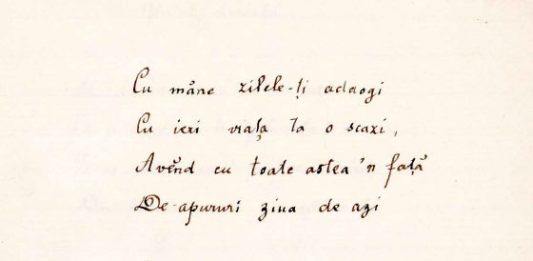 Cu mâne zilele-ți adaogi
Cu ieri viața ta o scazi,
Avĕnd cu toate astea 'n față
De-apururi ziua de azi